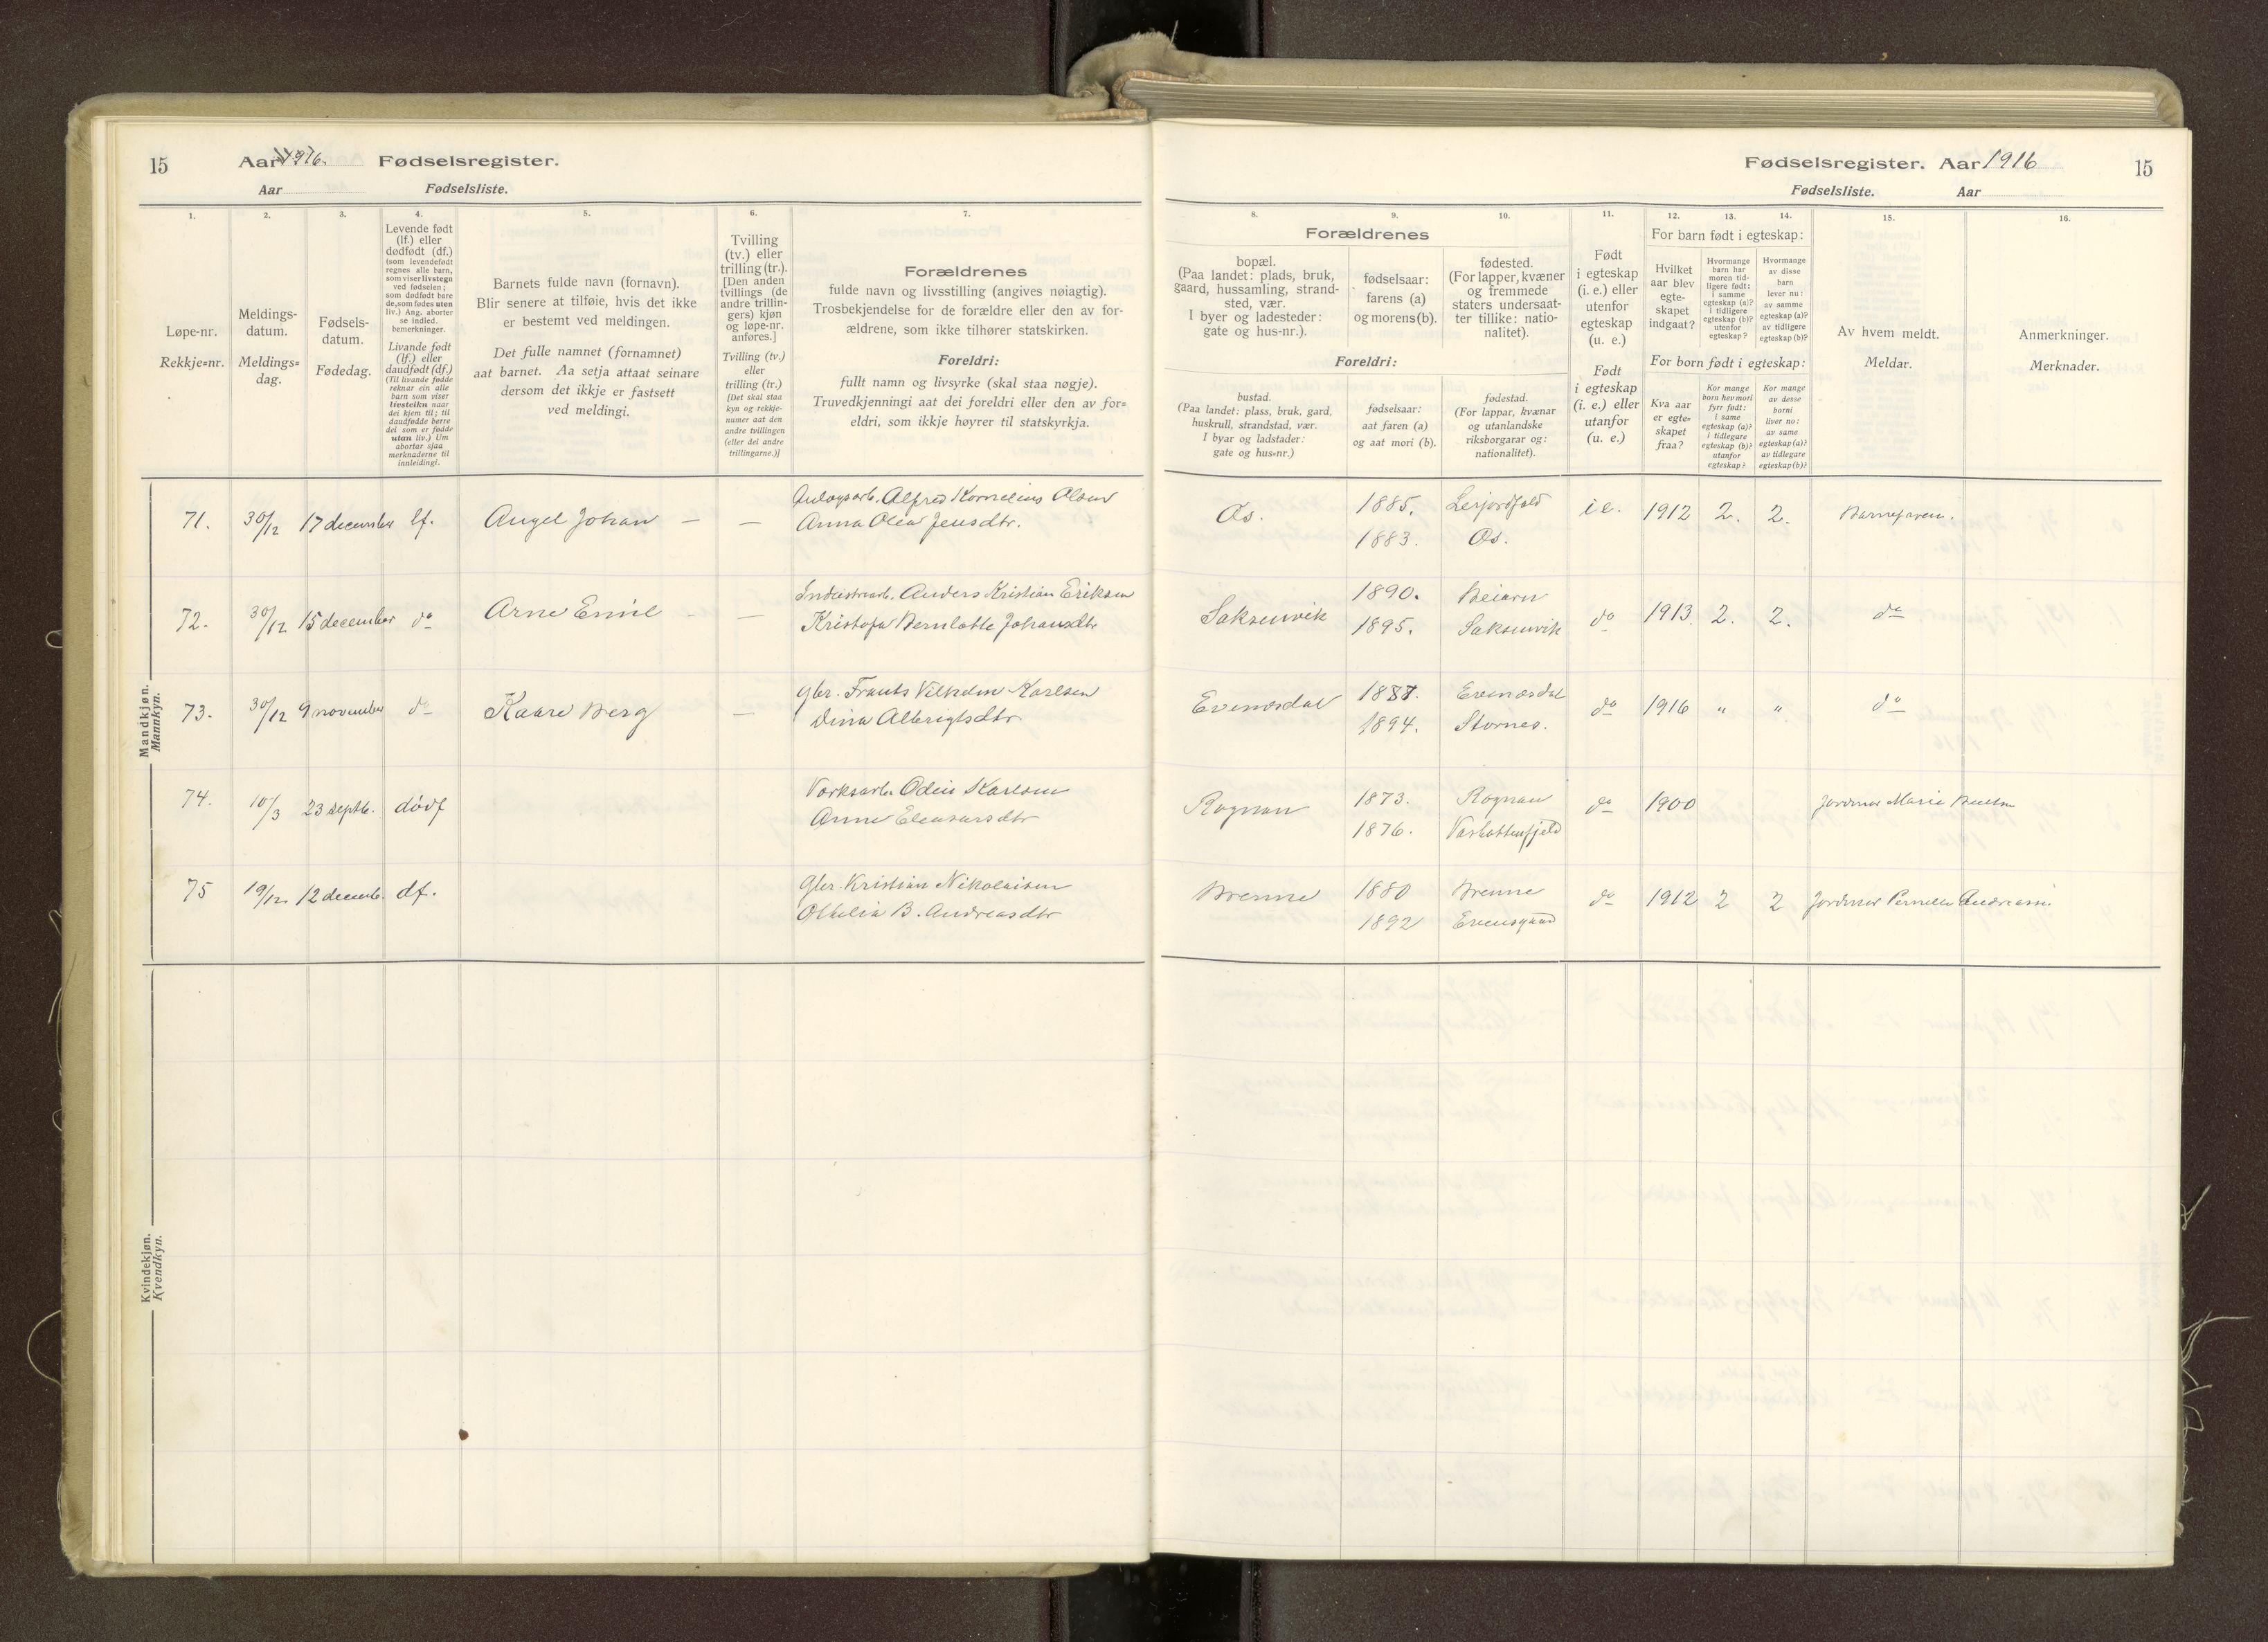 15 Aar 1916. Fødselsregister.
Aar Fødselsliste.
Fødselsregister. Aar 1916 15
Fødselsliste. Aar
1. 2. 3. 4. 5. 6. 7.
Løpe-nr.
Rekkje=nr.
Meldings-
datum.
Meldings=
dag.
Fødsels-
datum.
Fødedag.
Levende født
(lf.) eller
dødfødt (df.)
(som levendefødt
regnes alle barn,
som viser livstegn
ved fødselen;
som dødfødt bare
de, som fødes uten
liv.) Ang. aborter
se indled.
bemerkninger.
Livande født
(lf.) eller
daudfødt (df.)
(Til livande fødde
reknar ein alle
barn som viser
livsteikn naar
dei kjem til; til
daudfødde berre
dei som er fødde
utan liv.) Um
abortar sjaa
merknaderne til
innleidingi.
Barnets fulde navn (fornavn).
Blir senere at tilføie, hvis det ikke
er bestemt ved meldingen.
Det fulle namnet (fornamnet)
aat barnet. Aa setja attaat seinare
dersom det ikkje er fastsett
ved meldingi.
Tvilling
(tv.) eller
trilling (tr.).
[Den anden
tvillings (de
andre trillin-
gers) kjøn
og løpe-nr.
anføres.]
Tvilling (tv.)
eller
trilling (tr.)
[Det skal staa
kyn og rekkje-
numer aat den
andre tvillingen
(eller dei andre
trillingarne.)]
Forældrenes
fulde navn og livsstilling (angives nøiagtig).
Trosbekjendelse for de forældre eller den av for-
ældrene, som ikke tilhører statskirken.
Foreldri:
fullt namn og livsyrke (skal staa nøgje).
Truvedkjenningi aat dei foreldri eller den av for=
eldri, som ikkje høyrer til statskyrkja.
8. 9. 10. 11. 12. 13. 14. 15. 16.
Forældrenes
bopæl.
(Paa landet: plads, bruk,
gaard, hussamling, strand-
sted, vær.
I byer og ladesteder:
gate og hus-nr.).
fødselsaar:
farens (a)
og morens (b).
fødested.
(For lapper, kvæner
og fremmede
staters undersaat-
ter tillike: natio-
nalitet).
Foreldri:
bustad.
(Paa landet: plass, bruk, gard,
huskrull, strandstad, vær.
I byar og ladstader:
gate og hus=nr.)
fødselsaar:
aat faren (a)
og aat mori (b).
fødestad.
(For lappar, kvænar
og utanlandske
riksborgarar og:
nationalitet).
Født
i egteskap
(i. e.) eller
utenfor
egteskap
(u. e.)
Født
i egteskap
(i. e.) eller
utanfor
(u. e.)
For barn født i egteskap:
Hvilket
aar blev
egte-
skapet
indgaat?
Hvormange
barn har
moren tid-
ligere født:
i samme
egteskap (a)?
i tidligere
egteskap (b)?
utenfor
egteskap?
Hvormange
av disse
barn
lever nu:
av samme
egteskap (a)?
av tidligere
egteskap (b)?
For born født i egteskap:
Kva aar
er egte-
skapet
fraa?
Kor mange
born hev mori
fyrr født:
i same
egteskap (a)?
i tidlegare
egteskap (b)?
utanfor
egteskap?
Kor mange
av desse
borni
liver no:
av same
egteskap (a)?
av tidlegare
egteskap (b)?
Av hvem meldt.
Meldar.
Anmerkninger.
Merknader.
Mandkjøn.
Mannkyn.
71. 30/12 17 december lf. Angel Johan — — Anlægsarb. Alfred Kornelius Olsen
Anna Olea Jensdtr.
Øs. 1885. Leirjordfald i e. 1912 2. 2. Barnefaren.
1883. Øs.
72. 30/12 15 december do Arne Emil — — Industriarb. Anders Kristian Eriksen
Kristofa Bernlotte Johansdtr
Saksenvik 1890. Beiarn do 1913. 2. 2. do
1895. Saksenvik
73. 30/12 9 november do Kaare Berg — gbr. Frants Vilhelm Karlsen
Dina Albrigtsdtr.
Evenesdal 1887. Evenesdal do 1916 " " do
1894. Stornes.
74. 10/3 23 septb. dødf Verksarb. Odin Karlsen
Anne Eleasarsdtr
Rognan 1873. Rognan do 1900 Jordmor Maria
1876.
75 19/12. 12 decemb. df. gbr. Kristian Nikolaisen
Othelia B. Andreasdtr
Brenne 1880 Brenne do 1912 2 2 Jordmor Pernille
1892 Evensgaard
Kvindekjøn.
Kvendkyn.